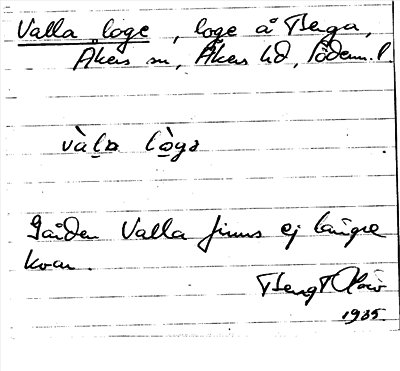 Valla loge, loge å Berga,
Åkers sn, Åkers hd, Söderm. l.
vàḷa lò̱gə
Gården Valla finns ej längre
kvar.
Bengt
1935.